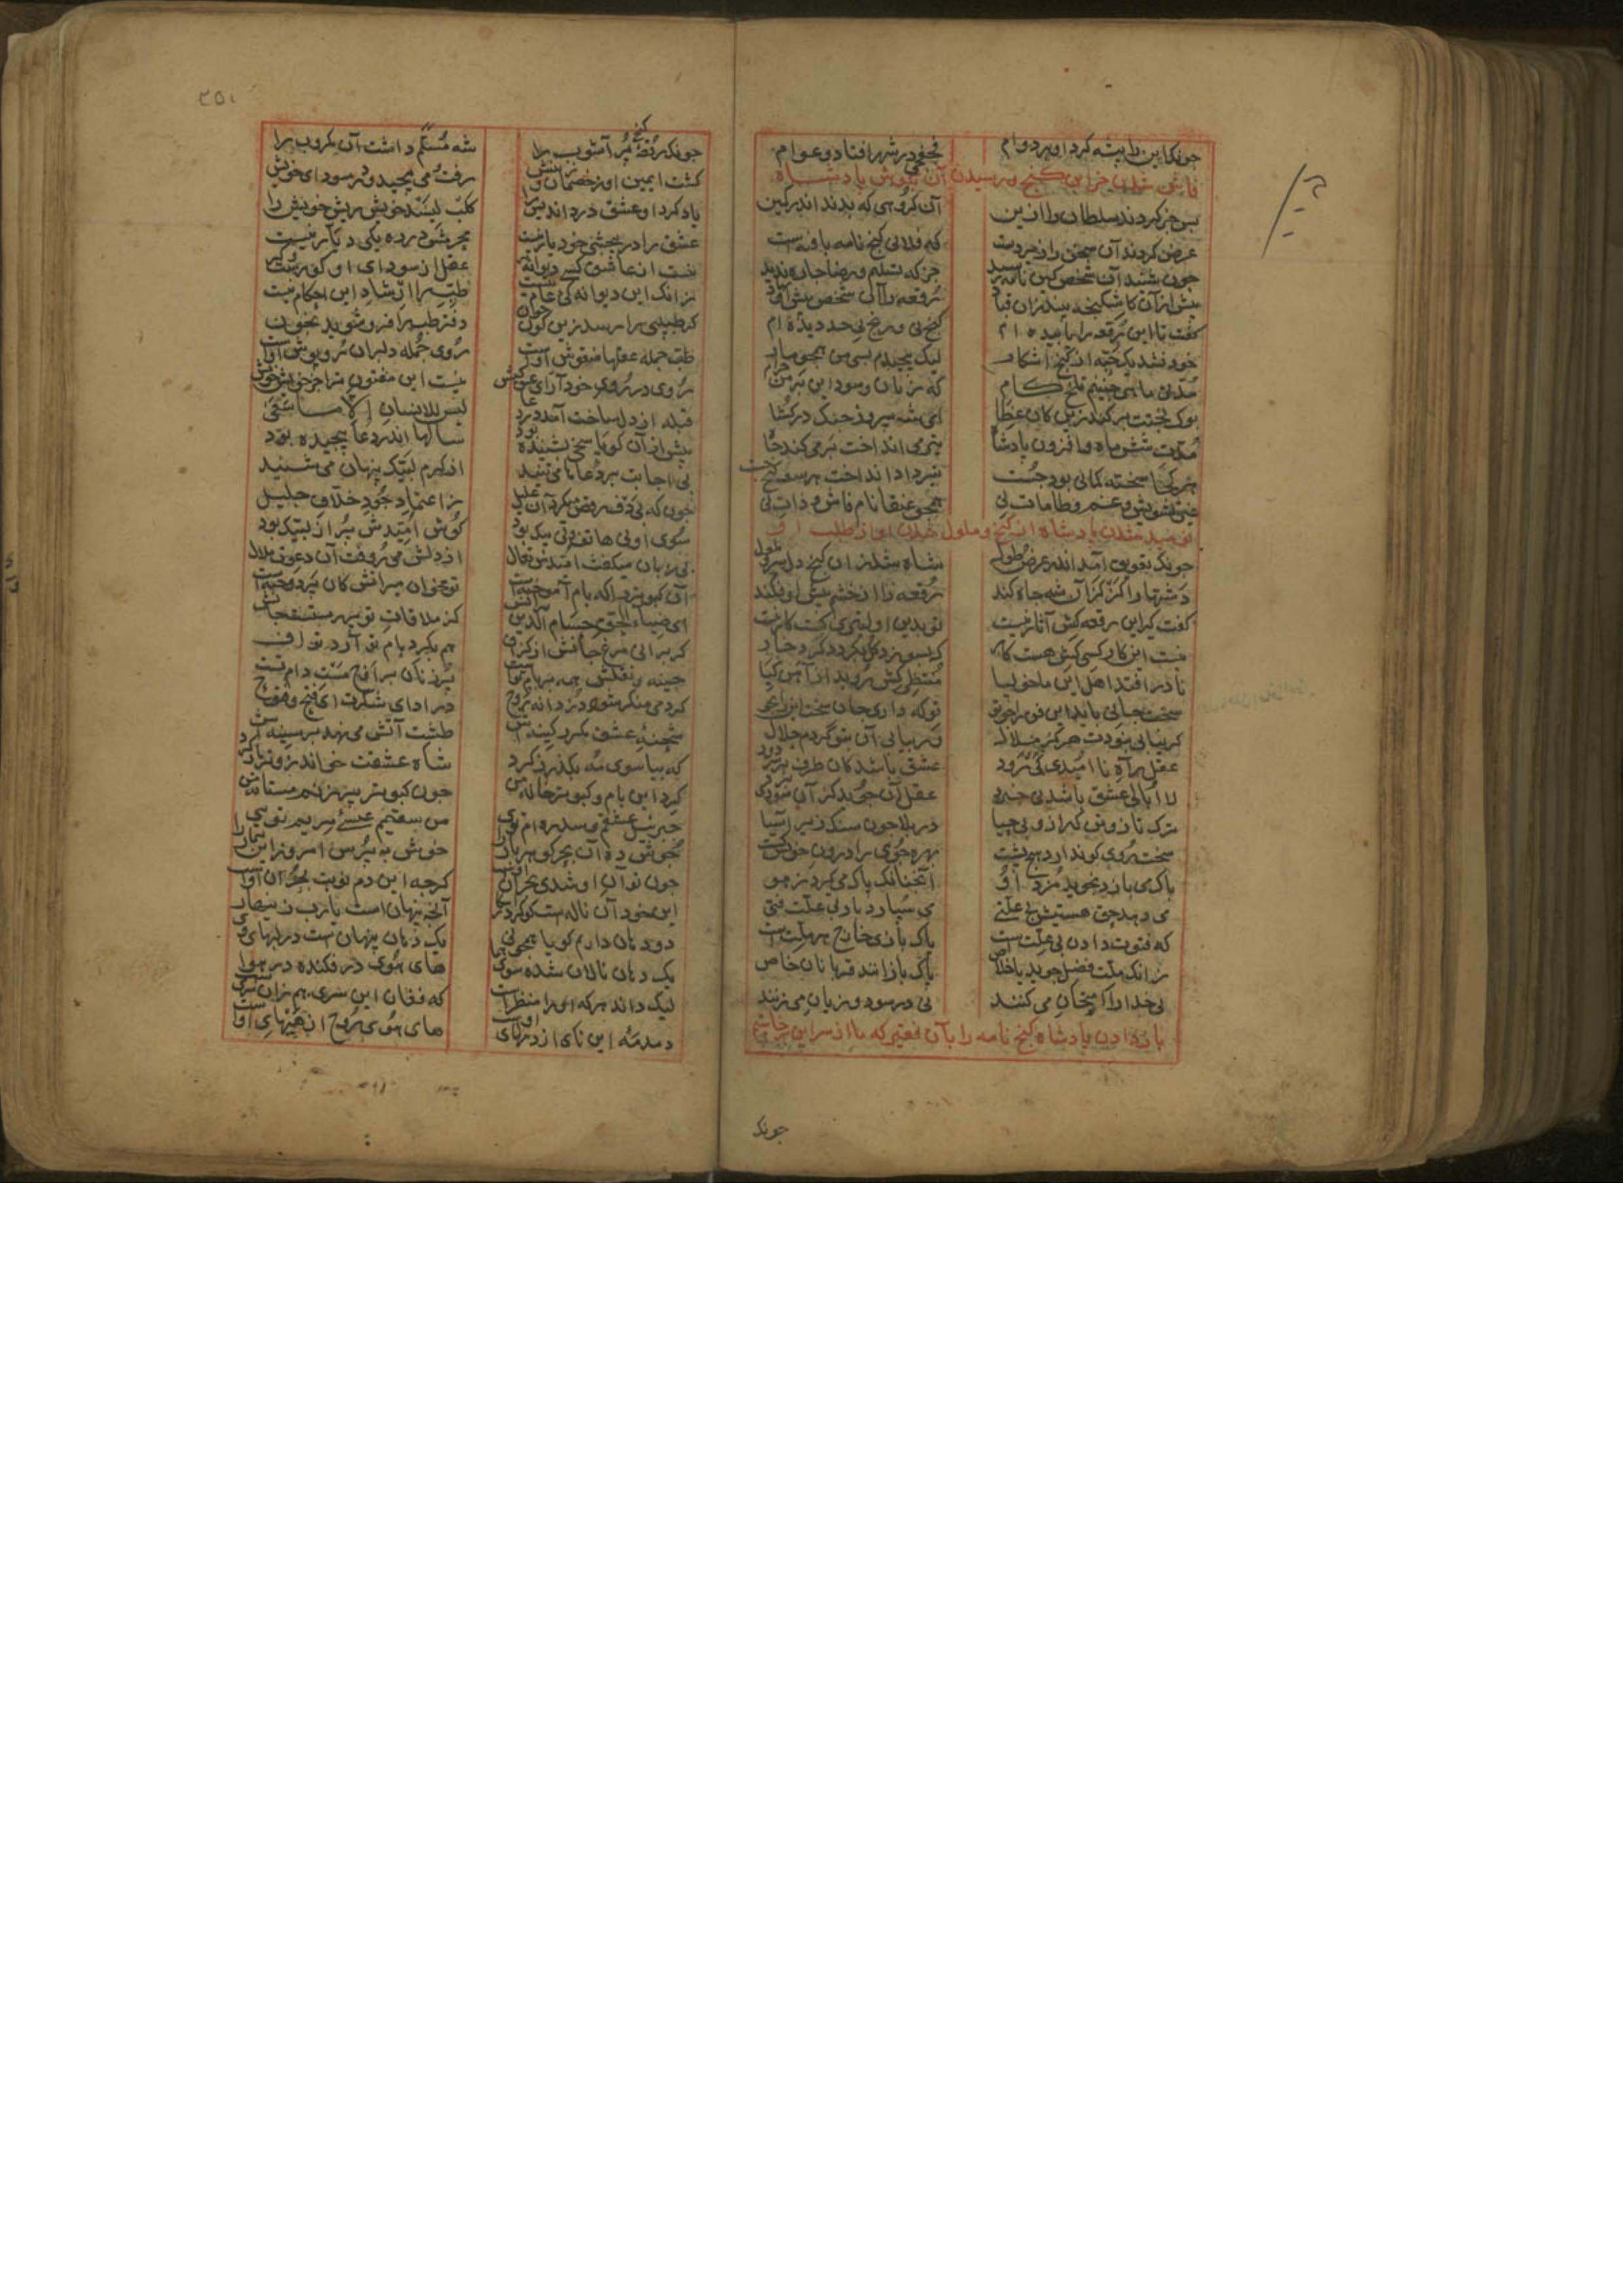 چونک این را پیشه کرد او بر دوام فجفجی در شهر افتاد و عوام
فاش شدن خبر این کنج و رسیدن آن بکوش پادشاه
پس خبر کردند سلطان را ازین آن کروهی که بدند اندر کمین
عرضه کردند آن سخن را زیردست که فلانی کنج نامه یافته است
چون شنید آن شخص کین با شه رسید جز که تسلیم و رضا چاره ندید
پیش از آن کاشکنجه بیند زان قباد رقعه را آن شخص پیش او نهاد
کفت تا این رقعه را یابیده ام کنج نی و رنج بی حد دیده ام
خود نشد یک حبه از کنج آشکار لیک پیچیدم بسی من همچو مار
مدتی ماهی چنینم تلخ کام که زیان و سود این بر من حرام
بوک بختت بر کند زین کان غطا ای شه پیروز جنک و درکشا
مدت شش ماه و افزون پادشا تیر می انداخت بر می کند چا
هر کجا سخته کمانی بود چست تیر داد انداخت هر سو کنج جست
غیر تشویش و غم و طامات نی همچو عنقا نام فاش و ذات نی
نومید شدن پادشاه از کنج و ملول شدن او از طلب او
چونک تعویق آمد اندر عرض و طول شاه شد زان کنج دل سیر و ملول
دشتها را کز کز آن شه چاه کند رقعه را از خشم پیش او فکند
کفت کیر این رقعه کش آثار نیست تو بدین اولیتری کت کار نیست
نیست این کار کسی کش هست کار که بسوزد کل بکردد کرد خار
نادر افتد اهل این ماخولیا منتظر کش روید از آهن کیا
سخت جانی باید این فن را چو تو تو که داری جان سخت این را بجو
کر نیابی نبودت هرکز ملال ور بیابی آن بتو کردم حلال
عقل راه ناامیدی کی رود عشق باشد کان طرف بر سر دود
لاابالی عشق باشد نی خرد عقل آن جوید کز آن سودی برد
ترک تاز و تن کداز و بی حیا در بلا چون سنک زیر آسیا
سخت رویی کو ندارد هیچ پشت بهره جویی را درون خویش کشت
پاک می بازد نجوید مزد او آنچنانک پاک می کیرد ز هو
می دهد حق هستیش بی علتی می سپارد باز بی علت فتی
که فتوت دادن بی علت است پاک بازی خارج هر ملت است
زانک ملت فضل جوید یا خلاص پاک بازانند قربانان خاص
نی خدا را امتحانی می کنند نی در سود و زیانی می زنند
باز دادن پادشاه کنج نامه را بآن فقیر که ما از سر این برخاستیم
چونک
۲۵۱
چونک رقعه کنج پر آشوب را شه مسلم داشت آن مکروب را
کشت ایمن او ز خصمان و ز نیش رفت و می پیچید در سودای خویش
یار کرد او عشق درد اندیش را کلب لیسد خویش ریش خویش را
عشق را در پیچش خود یار نیست محرمش در ده یکی دیار نیست
نیست از عاشق کسی دیوانه تر عقل از سودای او کورست و کر
زانک این دیوانکی عام نیست طب را ارشاد این احکام نیست
کر طبیبی را رسد زین کون جنون دفتر طب را فرو شوید بخون
طب جمله عقلها منقوش اوست روی جمله دلبران روپوش اوست
روی در روی خود آر ای عشق کیش نیست ای مفتون ترا جز خویش خویش
قبله از دل ساخت آمد در دعا لیس للانسان الا ما سعی
پیش از آن کو پاسخی بشنیده بود سالها اندر دعا پیچیده بود
بی اجابت بر دعاها می تنید از کرم لبیک پنهان می شنید
چون که بی دف رقص می کرد آن علیل ز اعتماد جود خلاق جلیل
سوی او نی هاتف و نی پیک بود کوش امیدش پر از لبیک بود
بی زبان میکفت امیدش تعال از دلش می روفت آن دعوت ملال
آن کبوتر را که بام آموخته است تو مخوان می رانش کان پر دوخته است
ای ضیاء الحق حسام الدین برانش کز ملاقات تو بر رستست جانش
کر برانی مرغ جانش از کزاف هم بکرد بام تو آرد طواف
چینه و نقلش همه بر بام تست پر زنان بر اوج مست دام تست
کر دمی منکر شود دزدانه روح در ادای شکرت ای فتح و فتوح
شحنه عشق مکرر کینه اش طشت آتش می نهد بر سینه اش
که بیا سوی مه و بکذر ز کرد شاه عشقت خواند زوتر باز کرد
کرد این بام و کبوترخانه من چون کبوتر پر زنم مستانه من
جبرئیل عشقم و سدره ام توی من سقیمم عیسی مریم توی
جوش ده آن بحر کوهربار را خوش بپرس امروز این بیمار را
چون تو آن او شدی بحر آن اوست کرچه این دم نوبت بحران اوست
این خود آن ناله است کو کرد آشکار آنچه پنهانست یا رب زینهار
دو دهان داریم کویا همچو نی یک دهان پنهانست در لبهای وی
یک دهان نالان شده سوی شما های هویی در فکنده در هوا
لیک داند هر که او را منظرست که فغان این سری هم زان سرست
دمدمه این نای از دمهای اوست های هوی روح از هیهای اوست